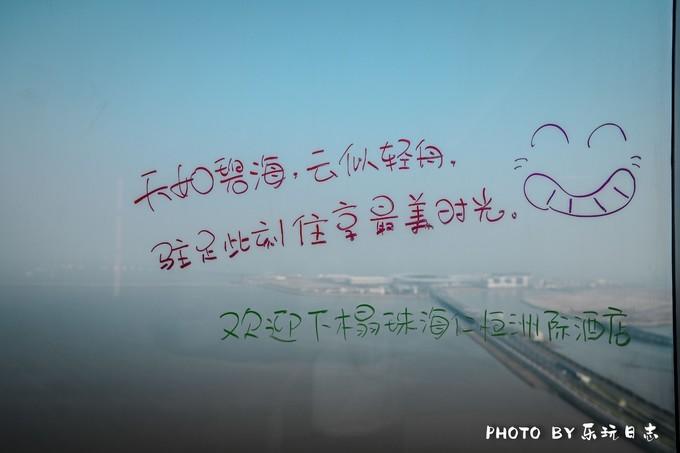 天如碧海，云似轻舟，
驻足此刻住享最美时光。
欢迎下榻珠海仁恒洲际酒店
PHOTO BY 乐玩日志